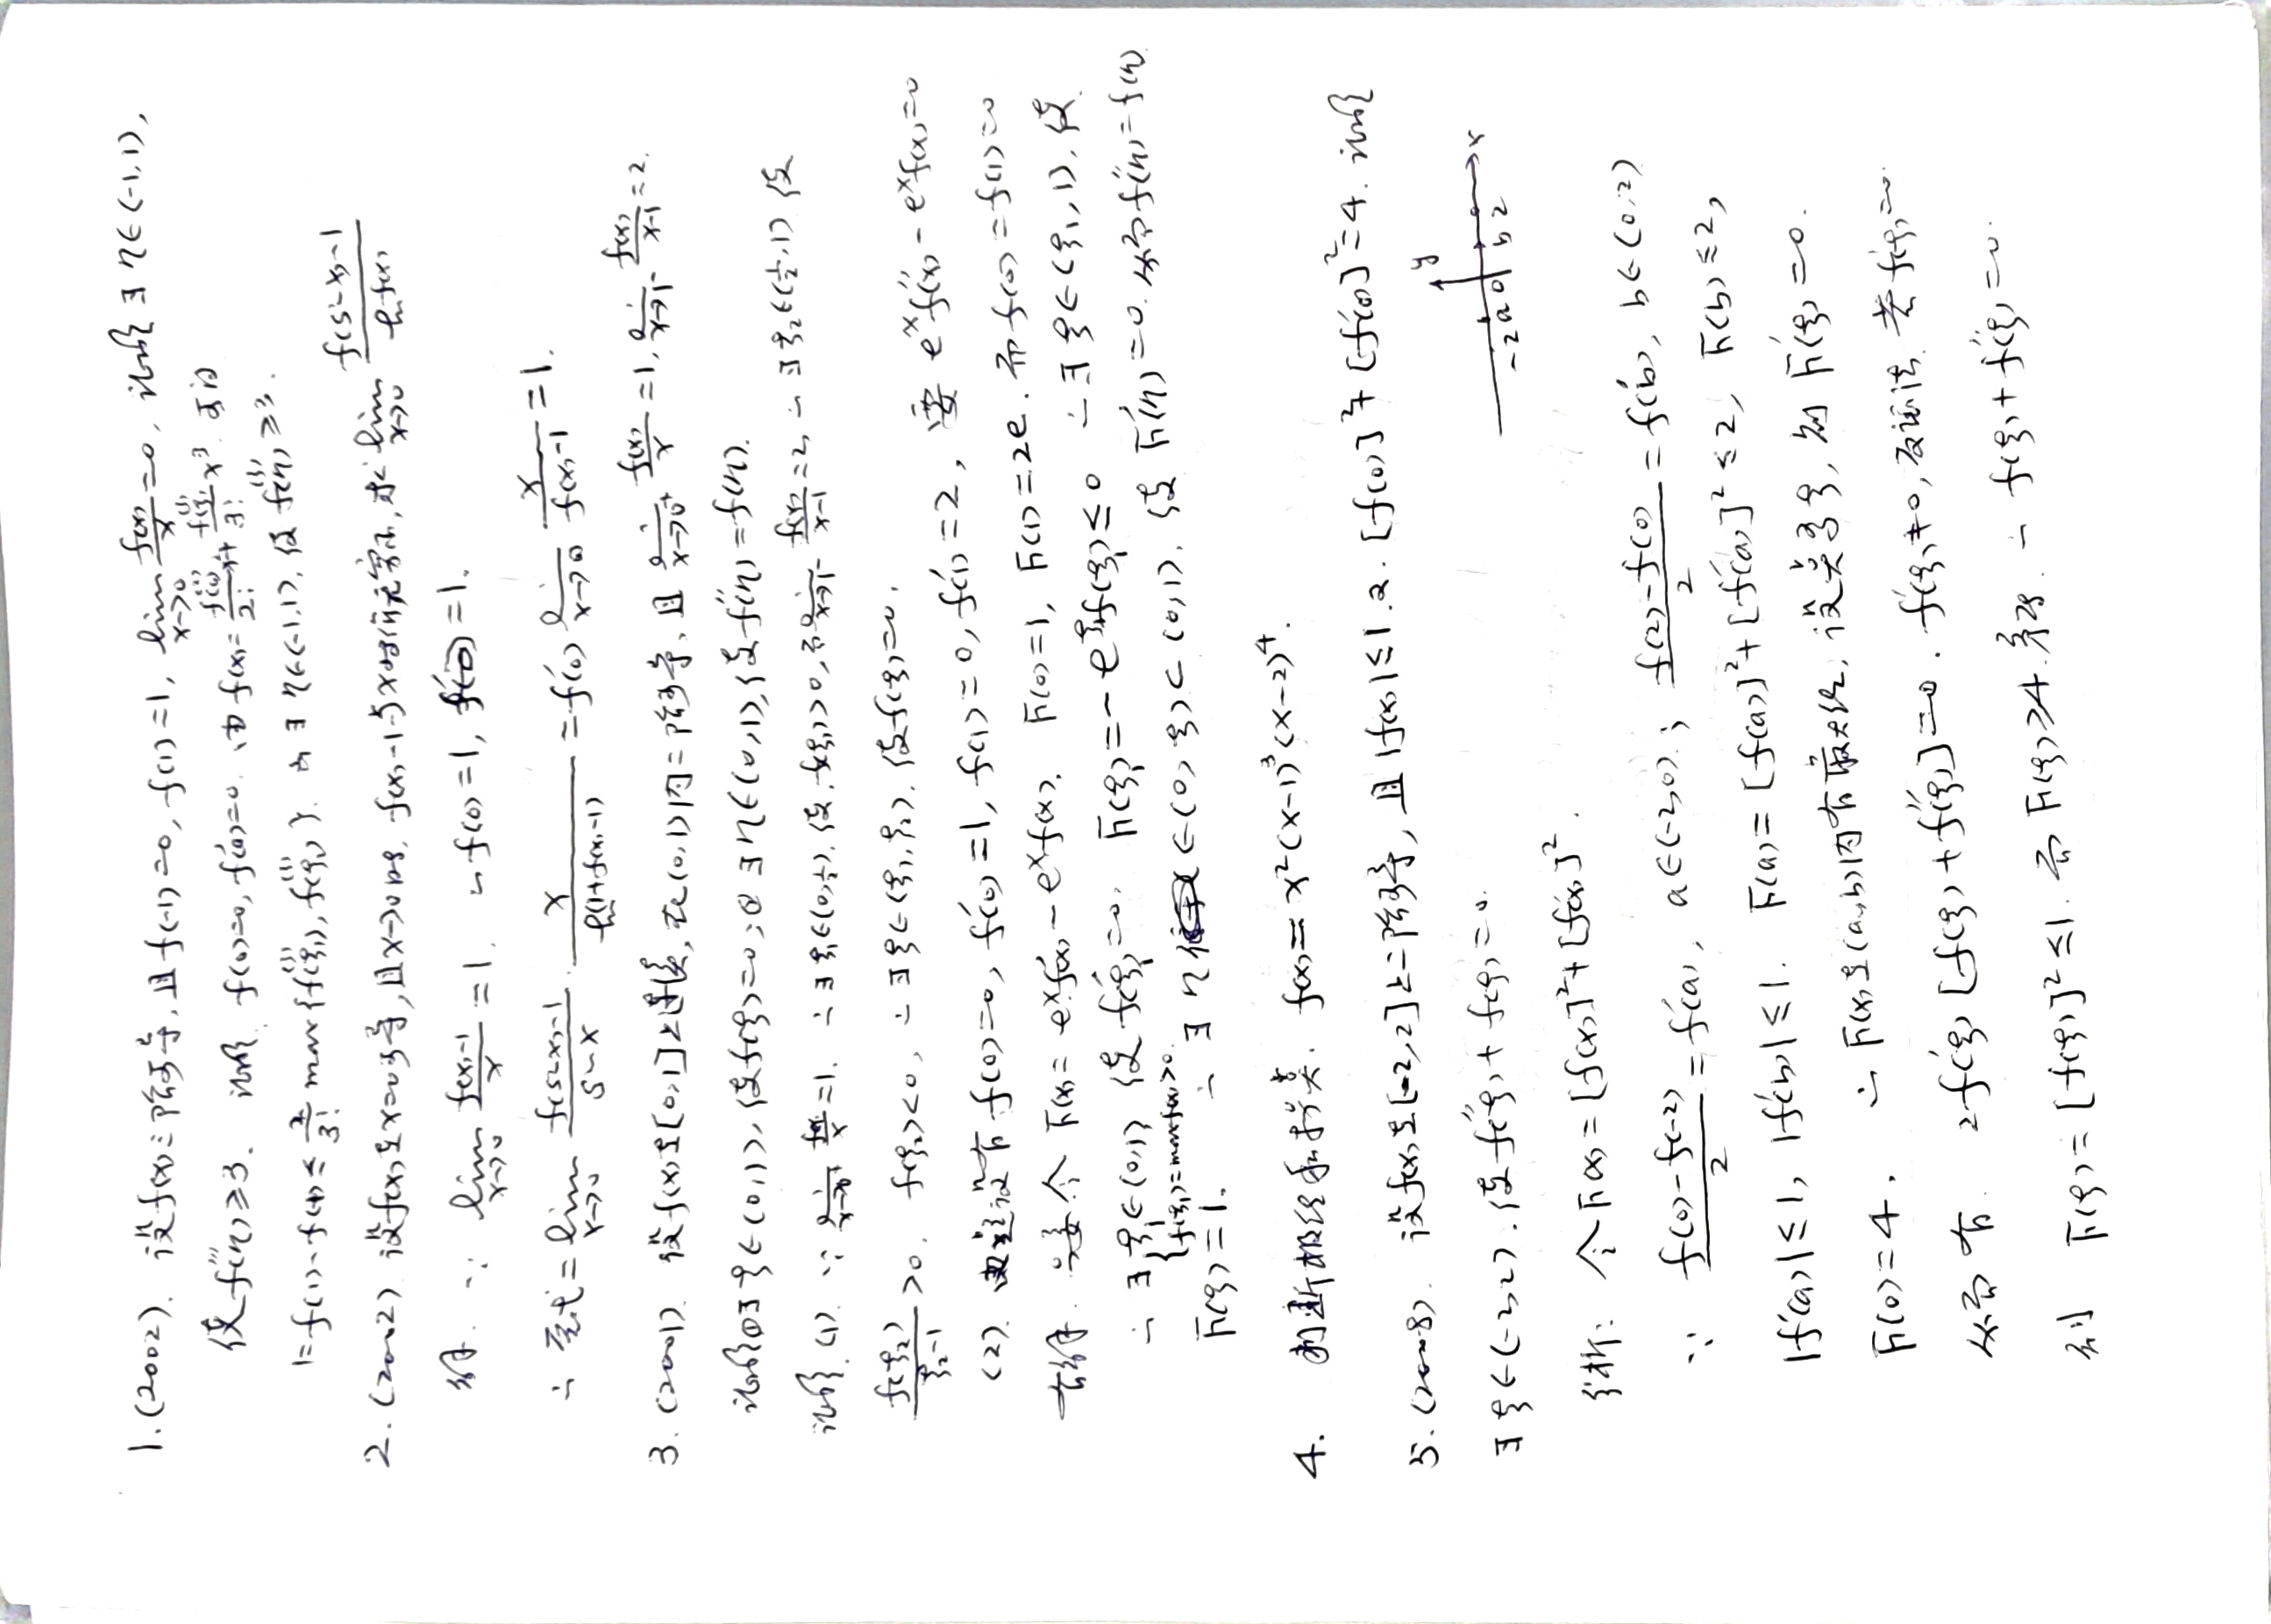 1.(2002). 设f(x)三阶可导,且f(-1)=0, f(1)=1, lim_{x→0} f(x)/x=0, 证明∃η∈(-1,1),
使f'''(η)≥3. 证明. f(0)=0, f'(0)=0. 由f(x)=f''(0)/2! x²+f'''(ξ)/3! x³. 可得
1=f(1)-f(-1)≤2/3! max{f'''(ξ₁), f'''(ξ₂)}. ∴∃η∈(-1,1), 使f'''(η)≥3.
2.(2002) 设f(x)在x=0可导,且x→0时, f(x)-1与x为等价无穷小,求lim_{x→0} f(5-x)-1/ln f(x)
解. ∵ lim_{x→0} f(x)-1/x=1. ∴f(0)=1, f'(0)=1.
∴原式=lim_{x→0} f(5-x)-1/5-x · x/ln(1+f(x)-1)=f'(0) lim_{x→0} x/f(x)-1=1.
3.(2001). 设f(x)在[0,1]上连续,在(0,1)内二阶可导,且lim_{x→0⁺} f(x)/x=1, lim_{x→1⁻} f(x)/x-1=2.
证明①∃ξ∈(0,1), 使f(ξ)=0;②∃η∈(0,1),使f''(η)=f(η).
证明(1). ∵lim_{x→0⁺} f(x)/x=1. ∴∃ξ₁∈(0,½).使,f(ξ₁)>0,而lim_{x→1⁻} f(x)/x-1=2, ∴∃ξ₂∈(½,1)使
f(ξ₂)/ξ₂-1>0. f(ξ₂)<0, ∴∃ξ∈(ξ₁,ξ₂).使f(ξ)=0.
(2). 有f(0)=0, f'(0)=1, f(1)=0, f'(1)=2, 要 eˣf''(x)-eˣf(x)=0
去解. 只要令F(x)=eˣf'(x)-eˣf(x). F(0)=1, F(1)=2e. 而f(0)=f(1)=0
∴∃ξ₁∈(0,1) 使f'(ξ₁)=0. F(ξ₁)=-e^{ξ₁}f(ξ₁)≤0 ∴∃ξ∈(ξ₁,1),使
{f(ξ₁)=max f(x)>0.
F(ξ)=1. ∴∃η∈(0,ξ)⊂(0,1). 使F'(η)=0.从而f''(η)=f(η)
4. 判断极值和拐点. f(x)=x²(x-1)³(x-2)⁴.
5.(2008). 设f(x)在[-2,2]上二阶可导,且|f(x)|≤1.又.[f(0)]²+[f'(0)]²=4.证明
∃ξ∈(-2,2).使f''(ξ)+f(ξ)=0.
y
-2 a 0 b 2 x
分析: 令F(x)=[f(x)]²+[f'(x)]².
∵ f(0)-f(-2)/2=f'(a), a∈(-2,0); f(2)-f(0)/2=f'(b), b∈(0,2)
|f'(a)|≤1, |f'(b)|≤1. F(a)=[f(a)]²+[f'(a)]²≤2, F(b)≤2,
F(0)=4. ∴F(x)在(a,b)内有最大值,设其为ξ,知F'(ξ)=0.
从而有. 2f'(ξ)[f(ξ)+f''(ξ)]=0. f'(ξ)≠0,反证法.若f'(ξ)=0.
则 F(ξ)=[f(ξ)]²≤1.而F(ξ)≥4.矛盾. ∴f(ξ)+f''(ξ)=0.